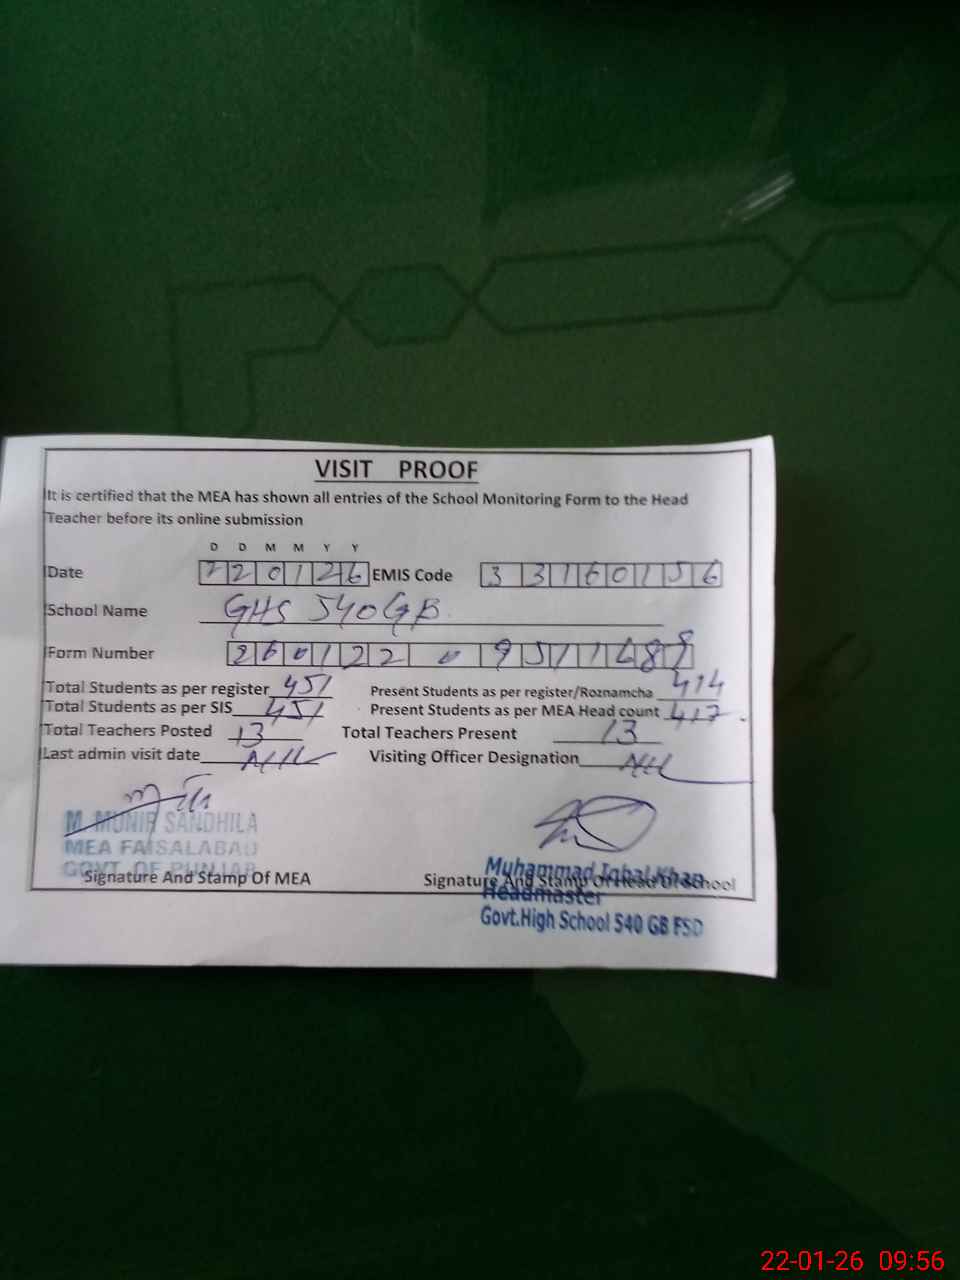 VISIT PROOF
It is certified that the MEA has shown all entries of the School Monitoring Form to the Head
Teacher before its online submission
D D M M Y Y
Date 220126 EMIS Code 33160156
School Name GHS 540 GB
Form Number
Total Students as per register 451 Present Students as per register/Roznamcha 414
Total Students as per SIS 451 Present Students as per MEA Head count 417
Total Teachers Posted 13 Total Teachers Present 13
Last admin visit date Nil Visiting Officer Designation Nil
M. MUNIR SANDHILA
MEA FAISALABAD
GOVT. OF PUNJAB
Signature And Stamp Of MEA
Muhammad Iqbal Khan
Signature And Stamp Of Head Of School
Headmaster
Govt.High School 540 GB FSD
22-01-26 09:56